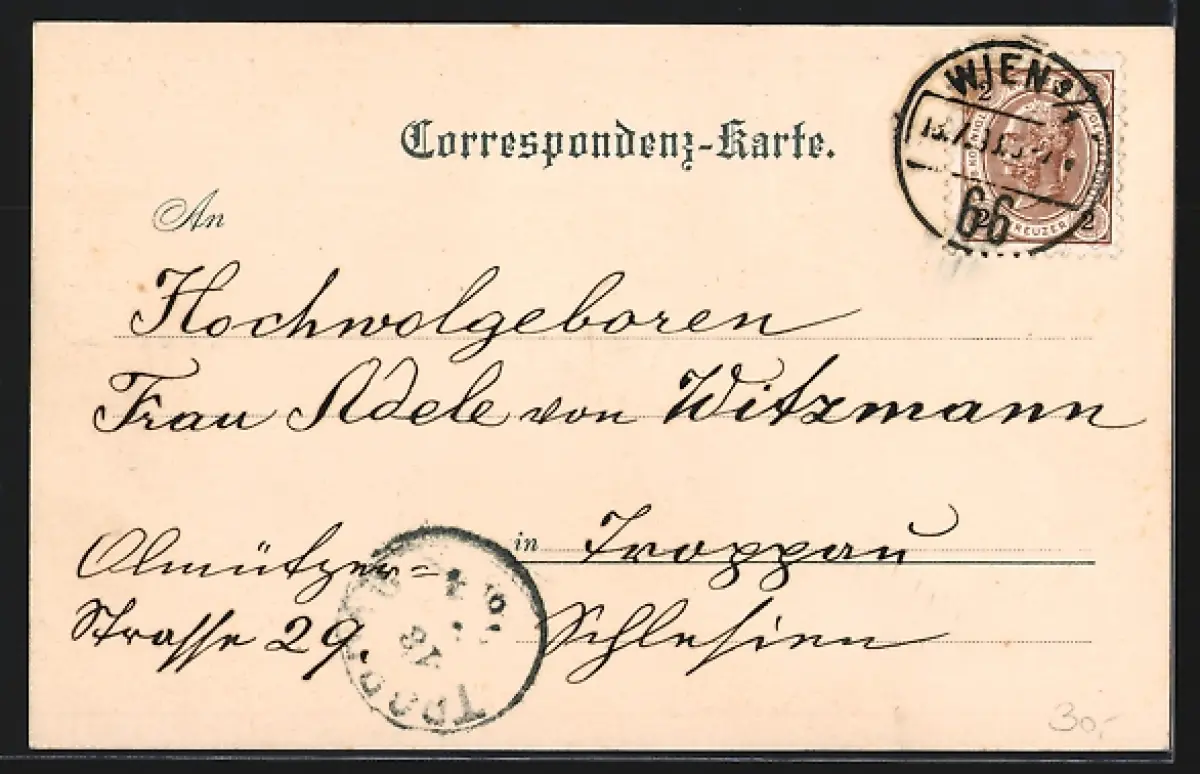 Correspondenz-Karte.
WIEN
66
2 2
KREUZER
2 2
An
Hochwolgeboren
Frau Adele von Witzmann
in Troppau
Olmützer-
Strasse 29.
Schlesien
30,-